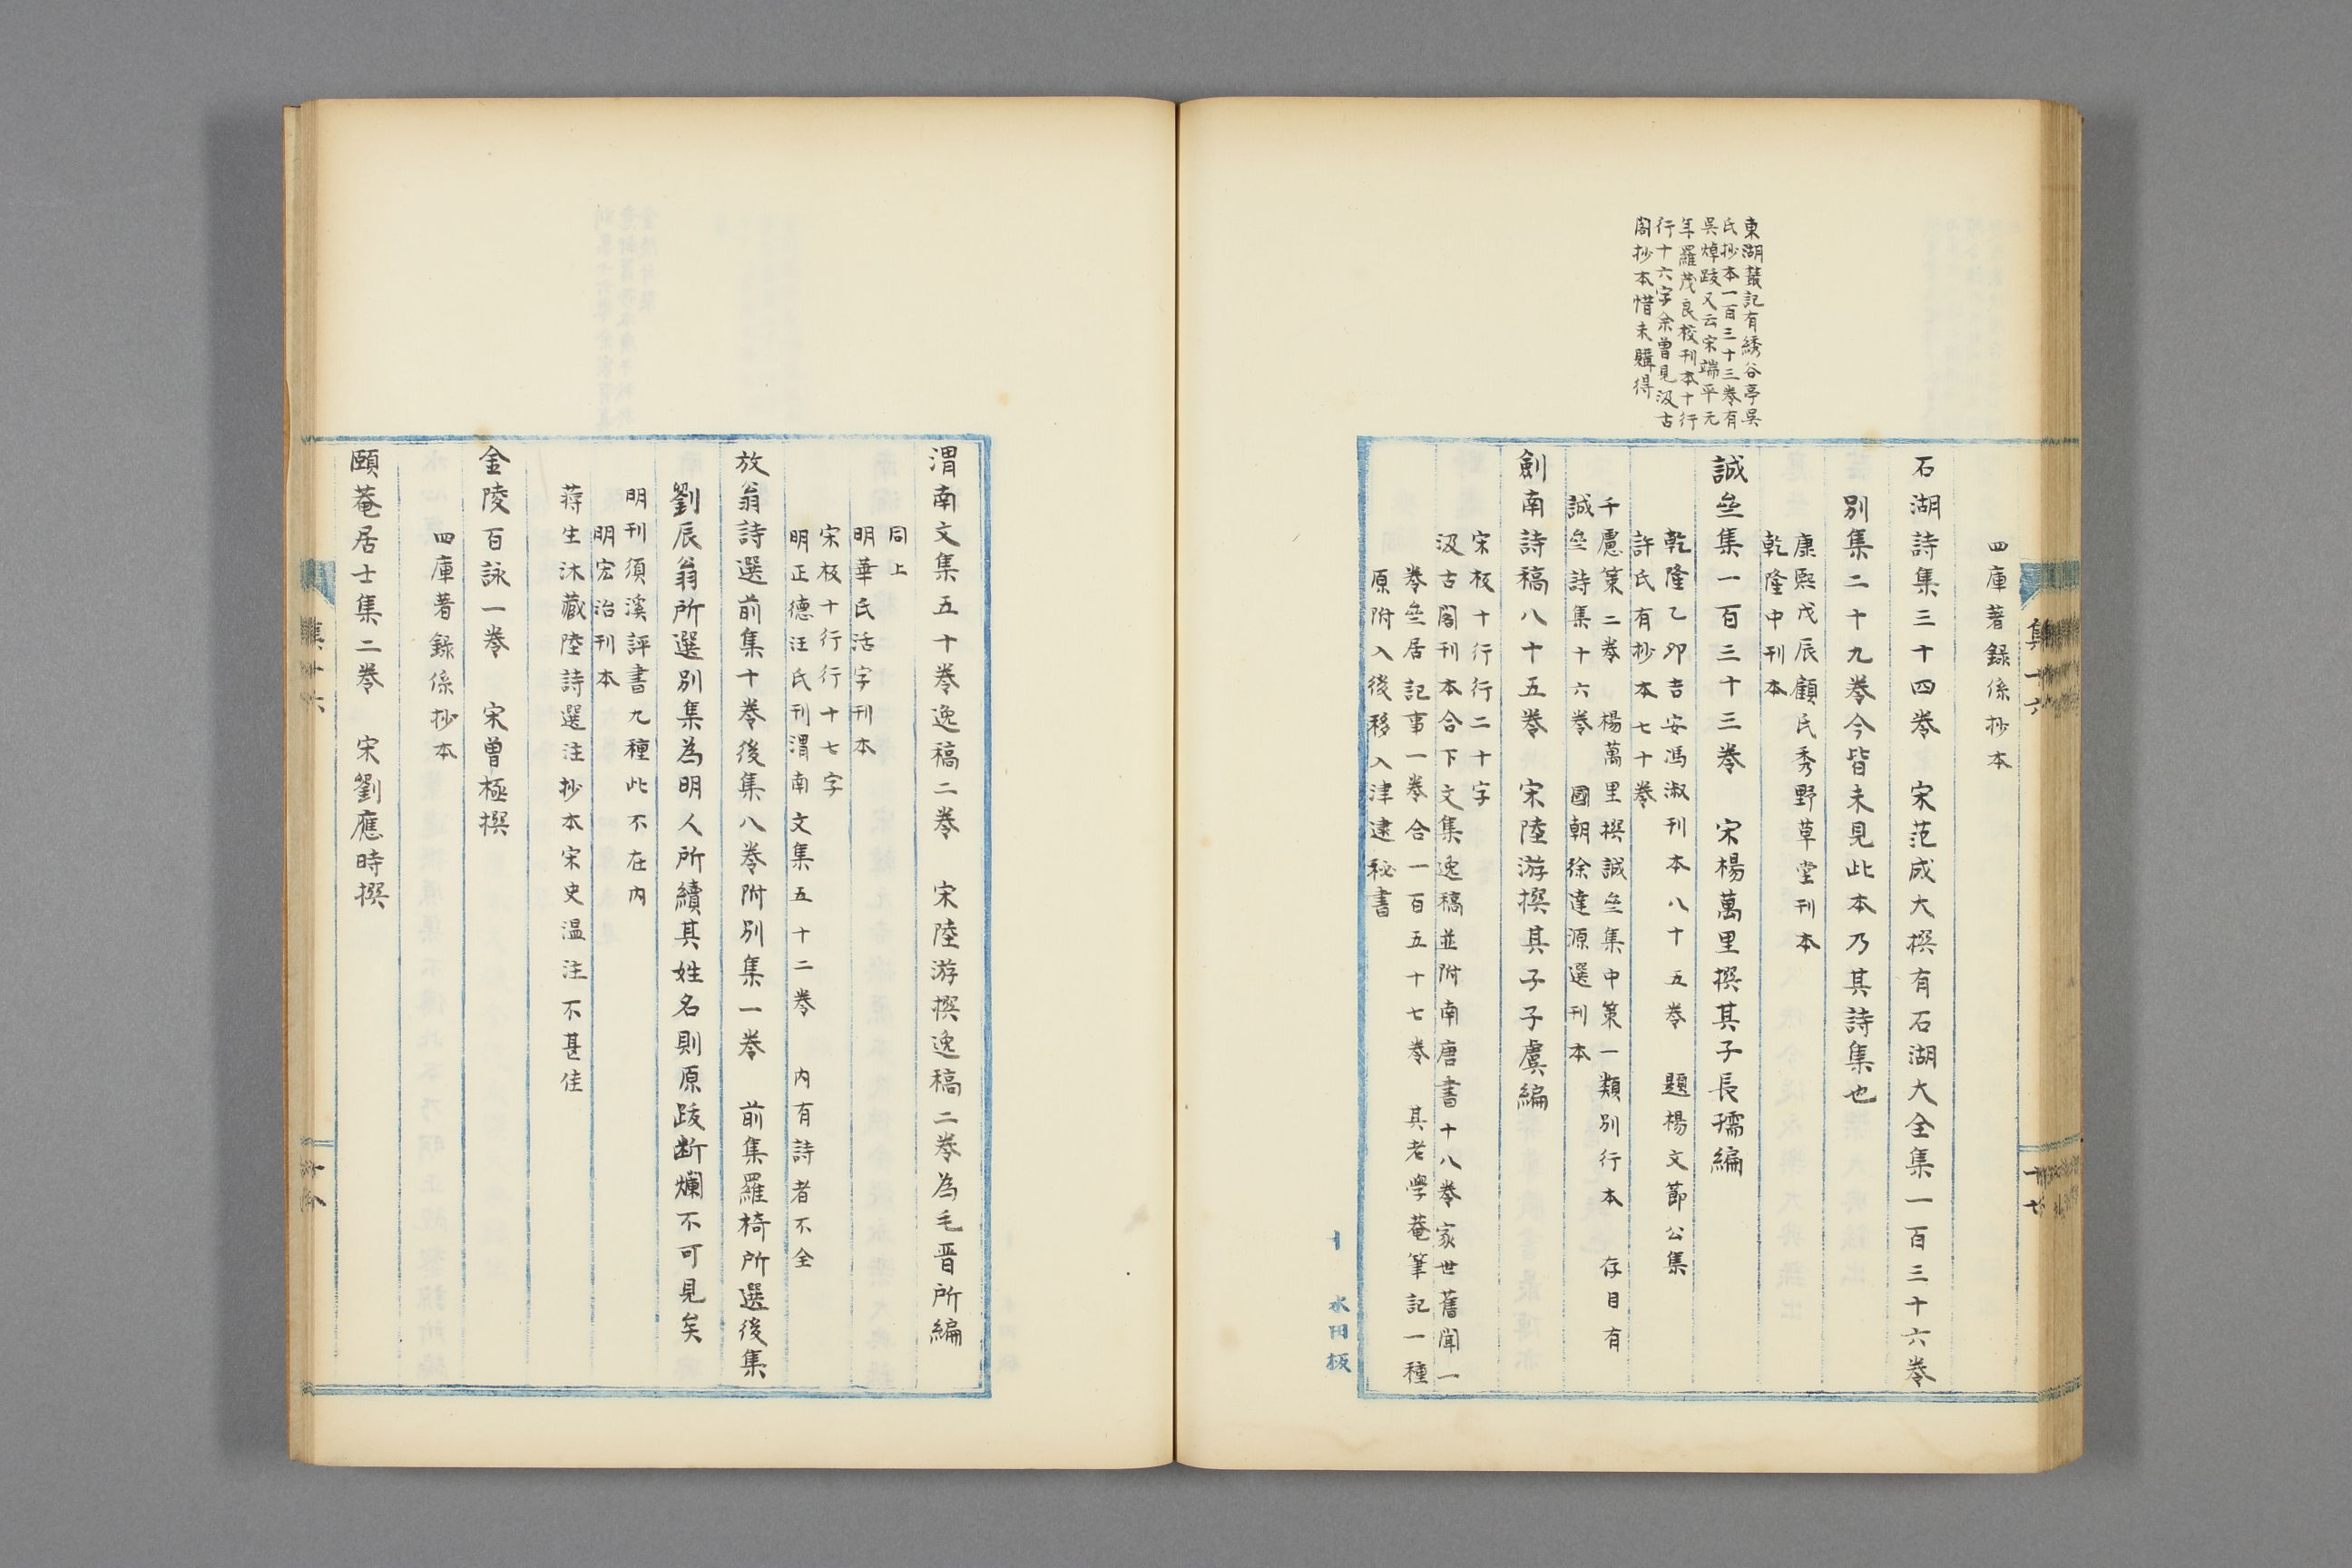 東湖叢記有綉谷亭吳
氏抄本一百三十三卷有
吳焯跋又云宋端平元
年羅茂良校刊本十行
行十六字余曾見汲古
閣抄本惜未購得
集十六
四庫著錄係抄本
石湖詩集三十四卷　宋范成大撰有石湖大全集一百三十六卷
別集二十九卷今皆未見此本乃其詩集也
康熙戊辰顧氏秀野草堂刊本
乾隆中刊本
誠齋集一百三十三卷　宋楊萬里撰其子長孺編
乾隆乙卯吉安馮淑刊本八十五卷　題楊文節公集
許氏有抄本七十卷
千慮策二卷　楊萬里撰誠齋集中策一類別行本　存目有
誠齋詩集十六卷　國朝徐達源選刊本
劍南詩稿八十五卷　宋陸游撰其子子虞編
宋板十行行二十字
汲古閣刊本合下文集逸稿並附南唐書十八卷家世舊聞一
卷齋居記事一卷合一百五十七卷　其老學菴筆記一種
原附入後移入津逮祕書
水田板
渭南文集五十卷逸稿二卷　宋陸游撰逸稿二卷為毛晋所編
同上
明華氏活字刊本
宋板十行行十七字
明正德汪氏刊渭南文集五十二卷　內有詩者不全
放翁詩選前集十卷後集八卷附別集一卷　前集羅椅所選後集
劉辰翁所選別集為明人所續其姓名則原跋断爛不可見矣
明刊須溪評書九種此不在內
明宏治刊本
蔣生沐藏陸詩選注抄本宋史温注不甚佳
金陵百詠一卷　宋曾極撰
四庫著錄係抄本
頤菴居士集二卷　宋劉應時撰
集十六